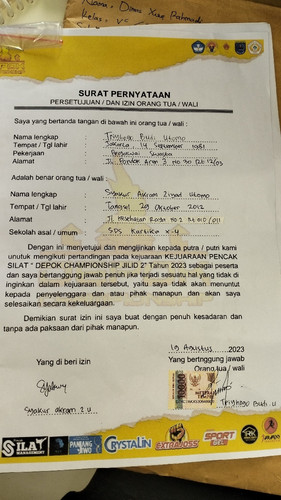 Nama =
Kelas =
SURAT PERNYATAAN
PERSETUJUAN / DAN IZIN ORANG TUA / WALI
Saya yang bertanda tangan di bawah ini orang tua / wali :
Nama lengkap : Utomo
Tempat / Tgl lahir : Jakarta 14 September 1981
Pekerjaan :
Alamat : Jl. Pondok
Adalah benar orang tua / wali :
Nama lengkap : Syakur Akram Utomo
Tempat / Tgl lahir : 29 Oktober 2012
Alamat : Jl
Sekolah asal / umum : SDS Kartika X-4
Dengan ini menyetujui dan mengijinkan kepada putra / putri kami
unutuk mengikuti pertandingan pada kejuaraan KEJUARAAN PENCAK
SILAT " DEPOK CHAMPIONSHIP JILID 2" Tahun 2023 sebagai peserta
dan saya bertanggung jawab penuh jika terjadi sesuatu hal yang tidak di
inginkan dalam kejuaraan tersebut, yaitu saya tidak akan menuntut
kepada penyelenggara dan atau pihak manapun dan akan saya
selesaikan secara kekeluargaan.
Demikian surat izin ini saya buat dengan penuh kesadaran dan
tanpa ada paksaan dari pihak manapun.
19 Agustus 2023
Yang di beri izin
Yang bertnggung jawab
Orang tua / wali
10000
Syakur akram z u
SILAT
MANAGEMENT
CRYSTALIN
EXTRAJOSS
SPORT